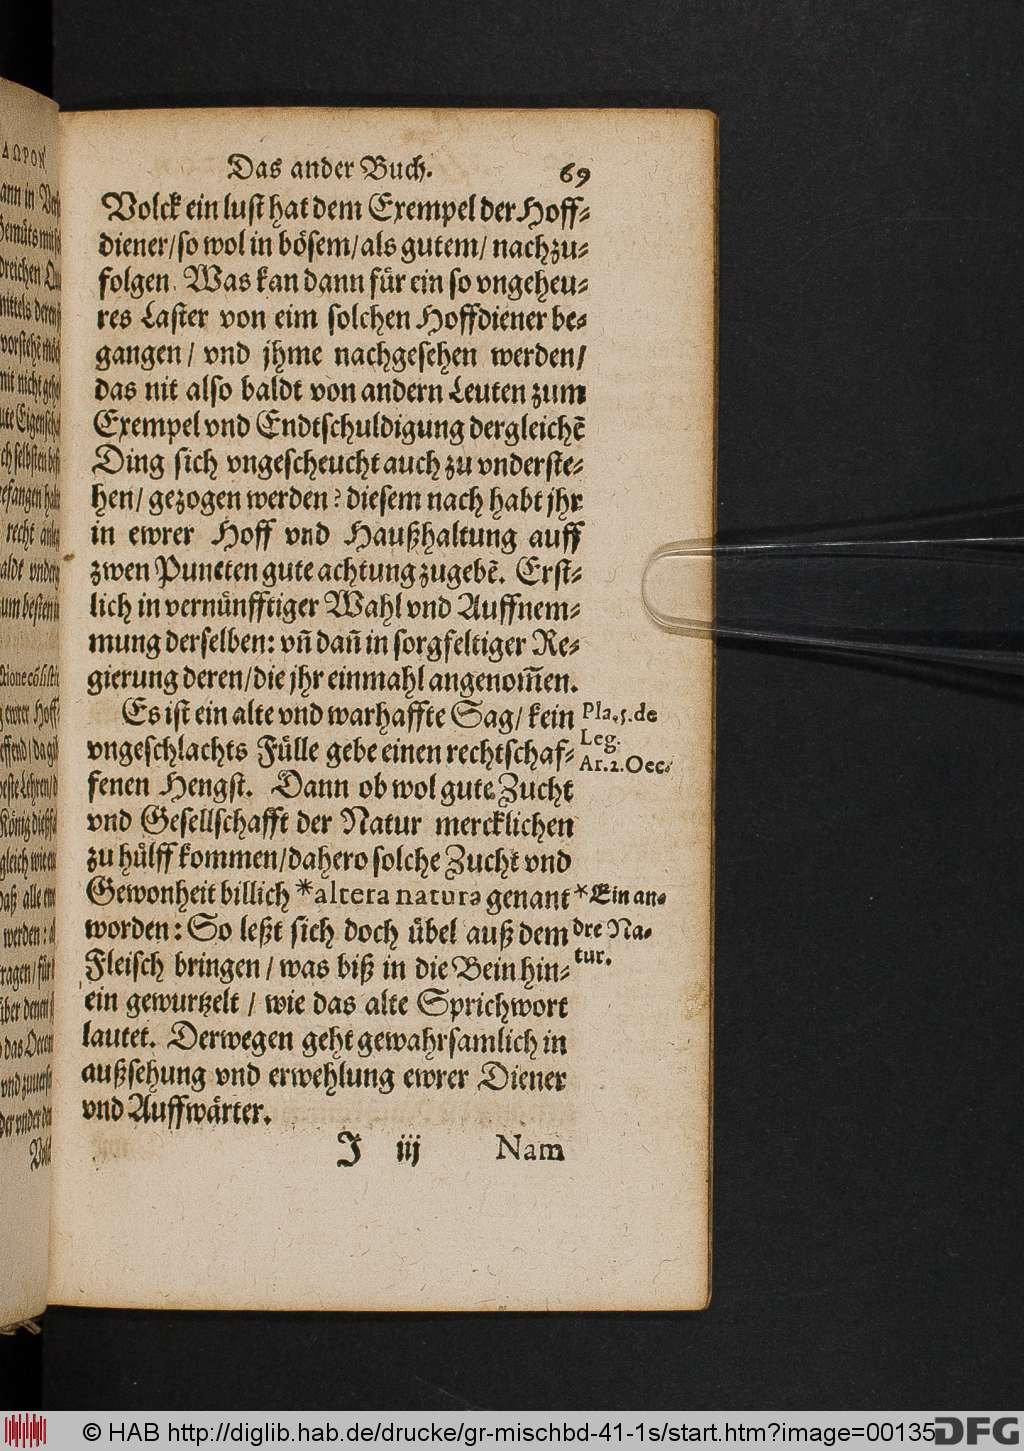 Das ander Buch. 69
Volck ein lust hat dem Exempel der Hoff⸗
diener/ so wol in bösem/ als gutem/ nachzu⸗
folgen. Was kan dann für ein so vngeheu⸗
res Laster von eim solchen Hoffdiener be⸗
gangen/ vnd jhme nachgesehen werden/
das nit also baldt von andern Leuten zum
Exempel vnd Endtschuldigung dergleichẽ
Ding sich vngescheucht auch zu vnderste⸗
hen/ gezogen werden? diesem nach habt jhr
in ewrer Hoff vnd Haußhaltung auff
zwen Puncten gute achtung zugebẽ. Erst⸗
lich in vernünfftiger Wahl vnd Auffnem⸗
mung derselben: vñ dañ in sorgfeltiger Re⸗
gierung deren/ die jhr einmahl angenom̃en.
Es ist ein alte vnd warhaffte Sag/ kein
vngeschlachts Fülle gebe einen rechtschaf⸗
fenen Hengst. Dann ob wol gute Zucht
vnd Gesellschafft der Natur mercklichen
zu hülff kommen/ dahero solche Zucht vnd
Gewonheit billich *altera natura genant
worden: So leßt sich doch übel auß dem
Fleisch bringen/ was biß in die Bein hin⸗
ein gewurtzelt/ wie das alte Sprichwort
lautet. Derwegen geht gewahrsamlich in
außsehung vnd erwehlung ewrer Diener
vnd Auffwärter.
Pla. 5. de
Leg.
Ar. 2. Oec.
*Ein an⸗
dre Na⸗
tur.
J iij Nam
© HAB http://diglib.hab.de/drucke/gr-mischbd-41-1s/start.htm?image=00135
DFG